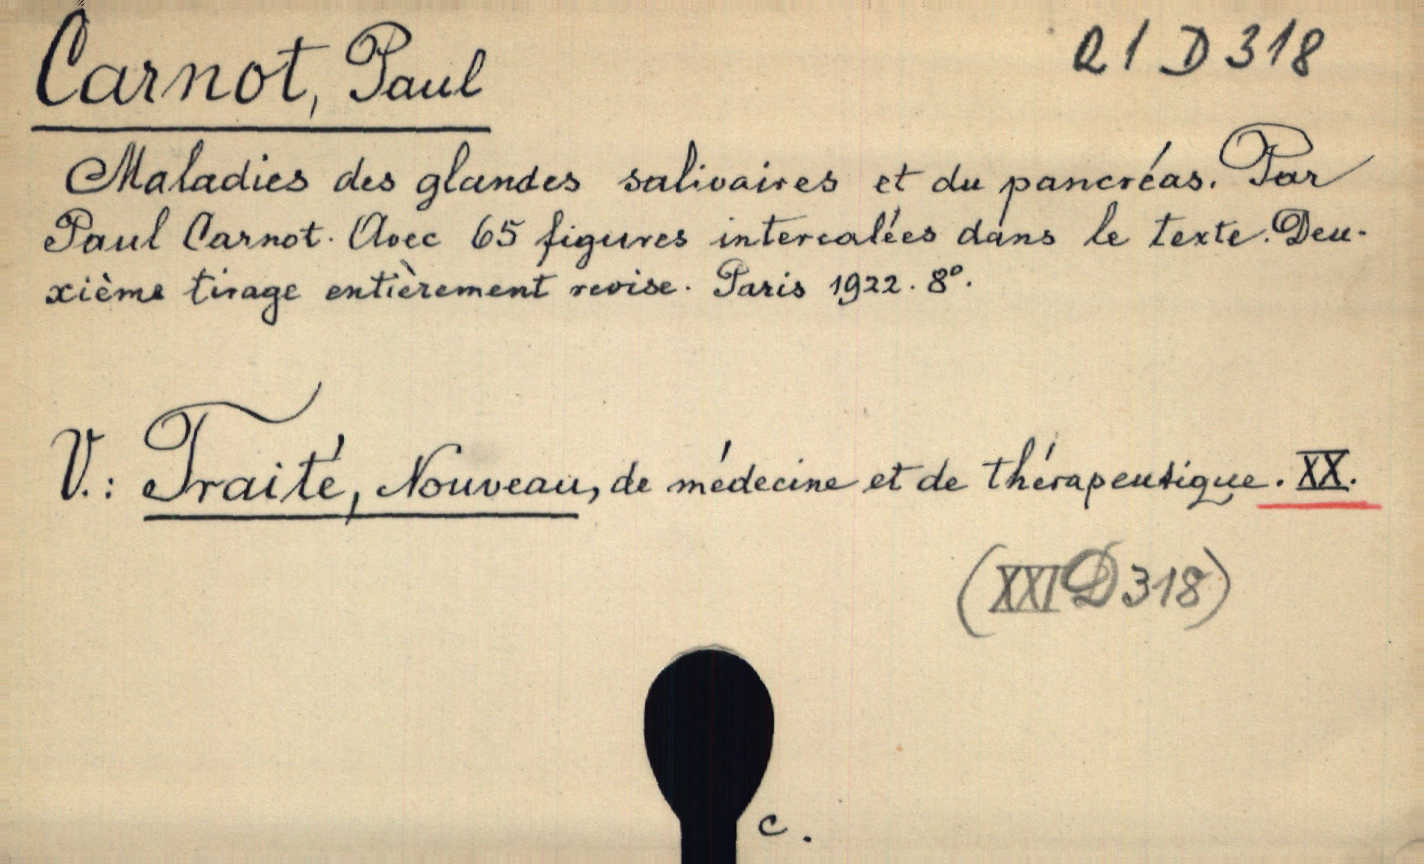 Carnot, Paul
21 D 318
Maladies des glandes salivaires et du pancréas. Par
Paul Carnot. Avec 65 figures intercalées dans le texte. Deu-
xième tirage entièrement revise. Paris 1922. 8°.
V.: Traité, Nouveau, de médecine et de thérapeutique. XX.
(XXI D 318)
c.